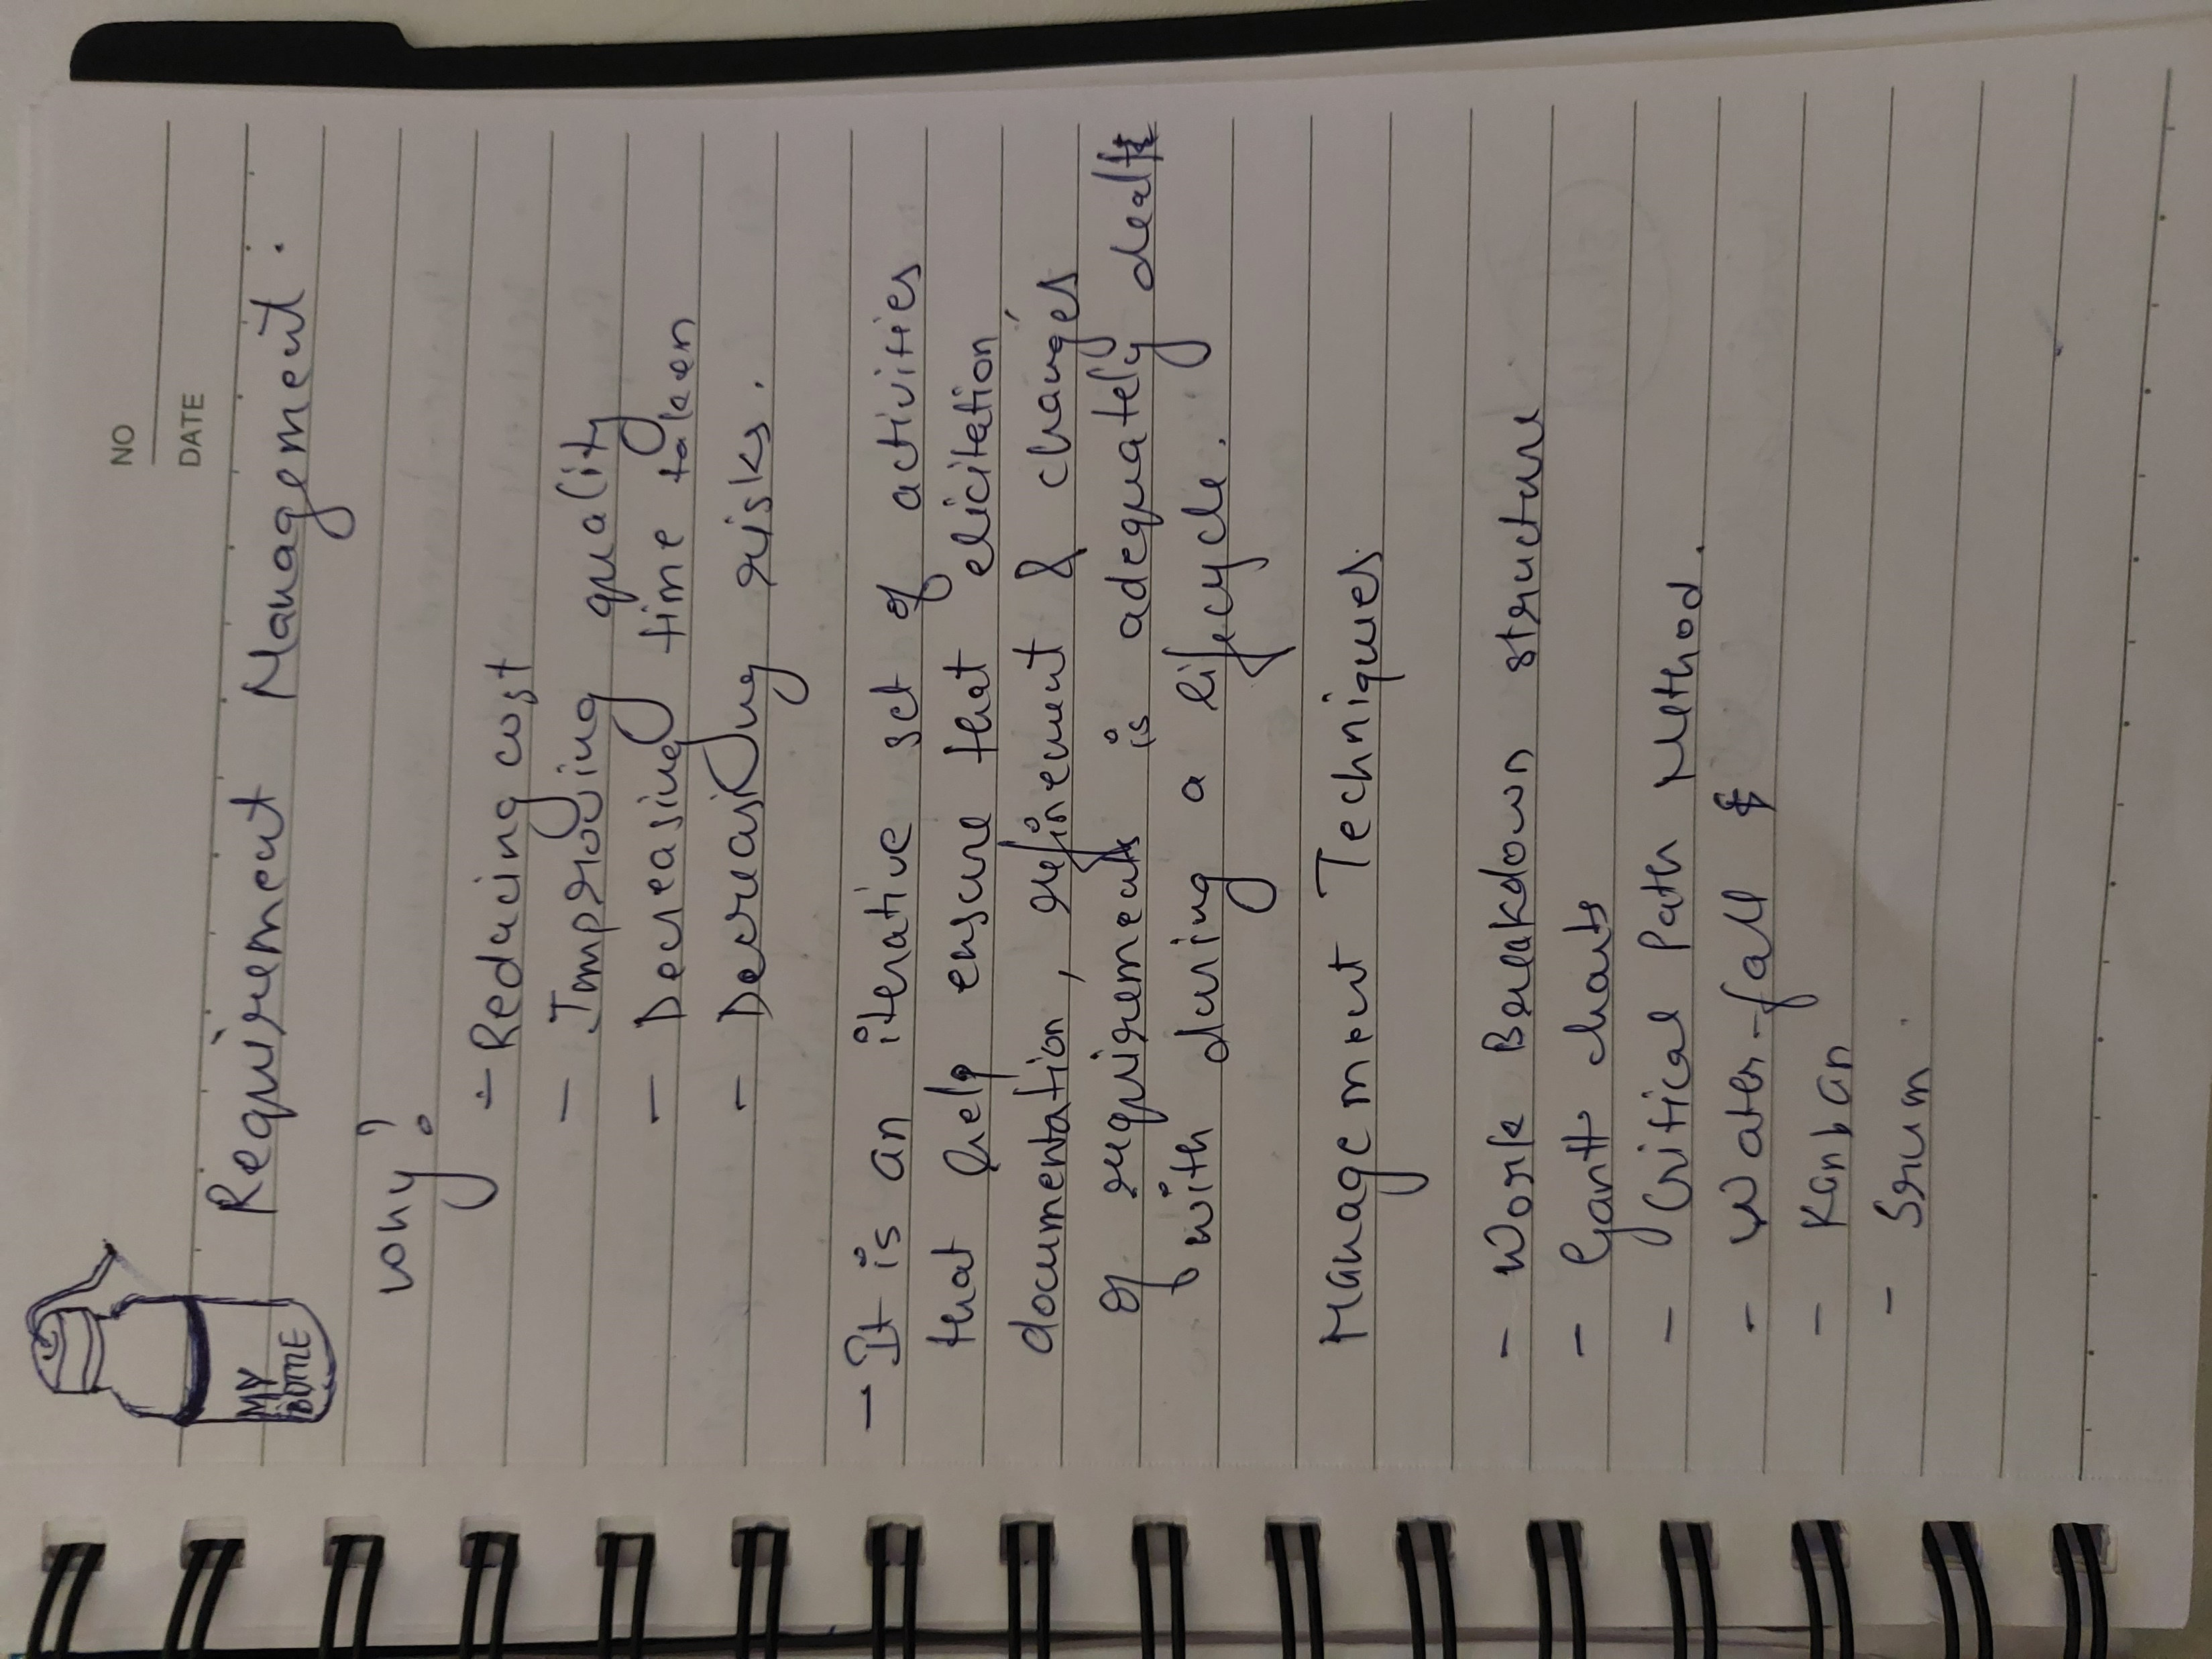 NO
DATE
MY
BOTTLE
Requirement Management.
why?
- Reducing cost
- Improving quality
- Decreasing time taken
- Decreasing risks.
- It is an iterative set of activities
that help ensure that elicitation
documentation, refinement & changes
of requirements is adequately dealt
with during a lifecycle.
Management Techniques.
- Work Breakdown structure
- Gantt charts
- Critical Path Method.
- Water-fall
- Kanban
- Srum.